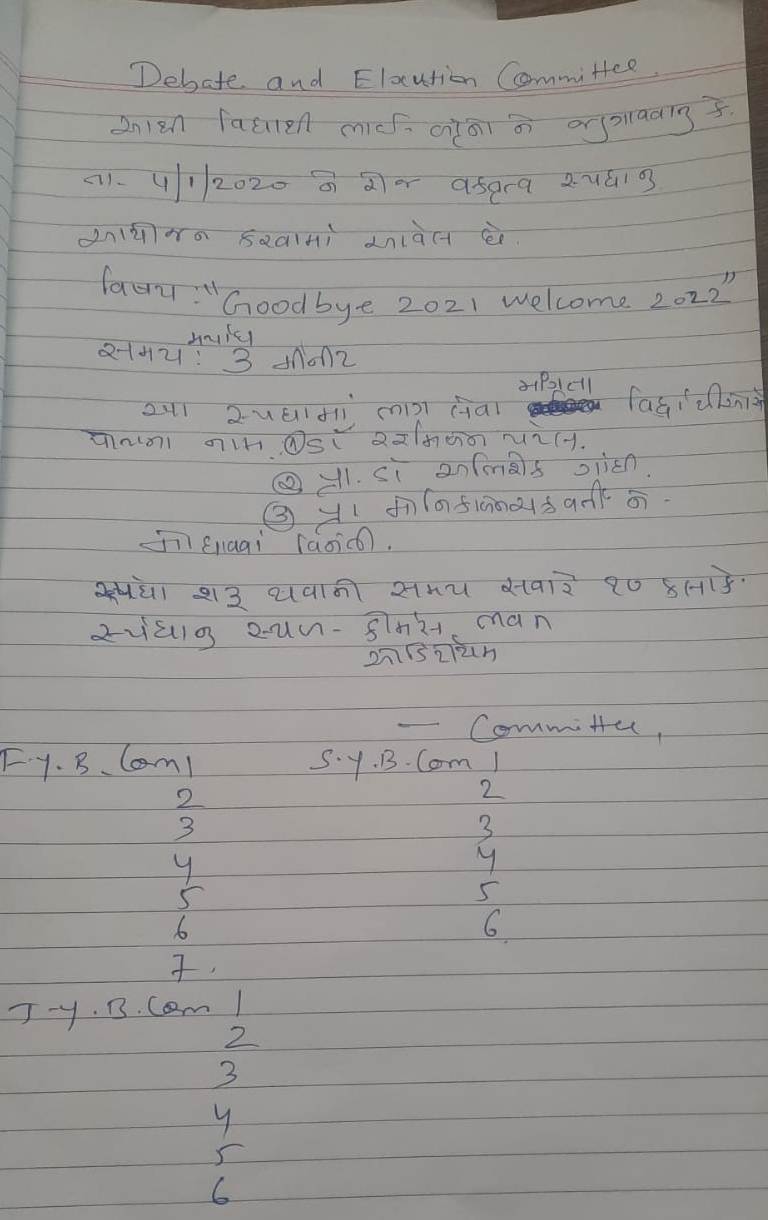 Debate and Elocution Committee.
આથી વિદ્યાર્થી ભાઈ-બહેનો ને જણાવવાનુ કે.
તા- 4/1/2020 ને રોજ વકતૃત્વ સ્પર્ધાનુ
આયોજન કરવામાં આવેલ છે.
વિષય : "Goodbye 2021 welcome 2022"
સમય મર્યાદા : 3 મીનીટ
આ સ્પર્ધામાં ભાગ લેવા માંગતા વિદ્યાર્થીઓએ
પોતાના નામ ① ડૉ રશ્મિકાન્ત પટેલ.
② પ્રા. ડૉ અભિષેક ગાંધી.
③ પ્રા મોનિકા ચક્રવર્તી ને -
નોંધાવવાં વિનંતી.
સ્પર્ધા શરૂ થવાની સમય સવારે ૧૦ કલાકે.
સ્પર્ધાનુ સ્થળ - કોમર્સ ભવન
ઓડિટોરીયમ
— Committee,
F.Y.B.Com 1 S.Y.B.Com 1
2 2
3 3
4 4
5 5
6 6
7.
T-Y.B.Com 1
2
3
4
5
6